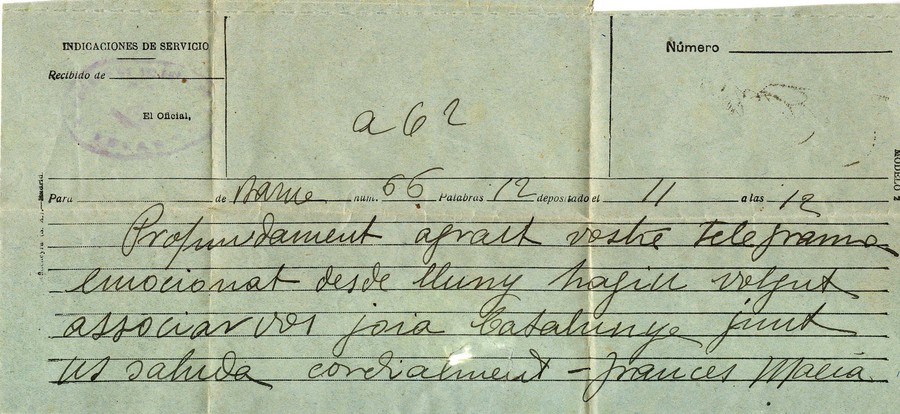 INDICACIONES DE SERVICIO
Recibido de
El Oficial,
Número
a 62
MODELO 2
Para de Barne núm. 66 Palabras 12 depositado el 11 a las 12
Profundament agrait vostre telegrama
emocionat desde lluny hagiu volgut
associarvos joia Catalunya junt
us saluda cordialment - Frances Macia